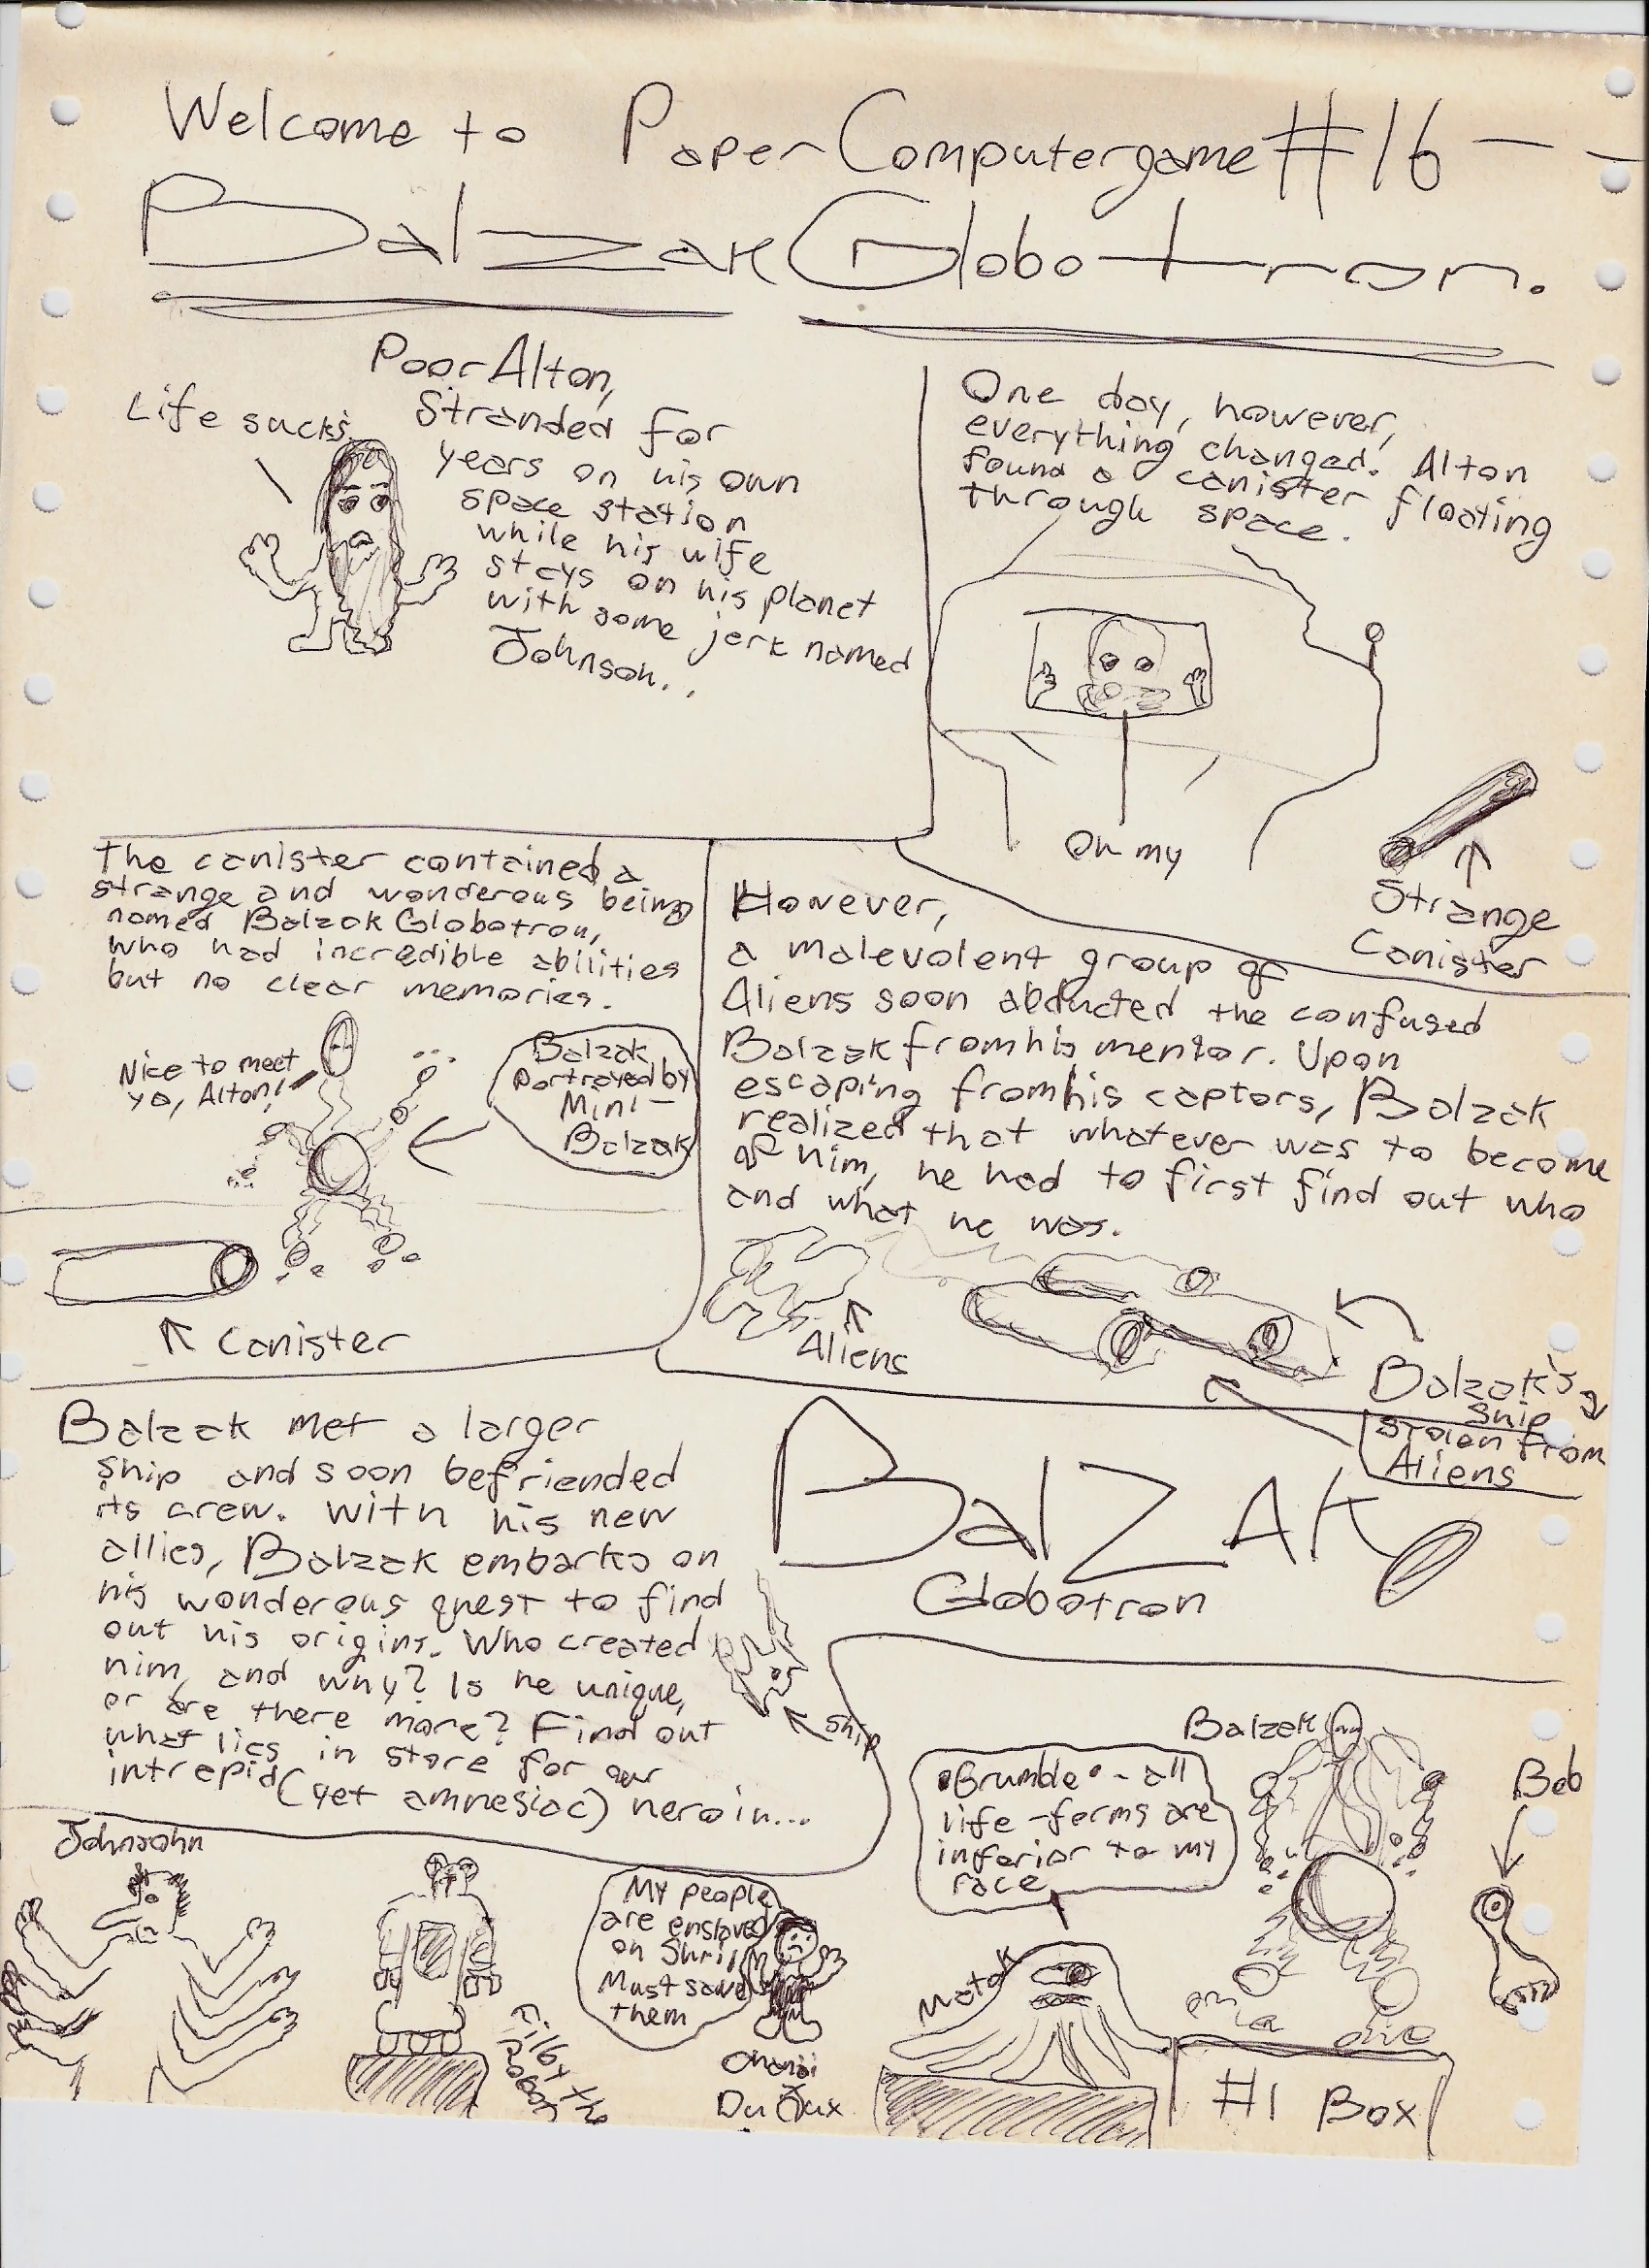 Welcome to PaperComputergame #16 - -
Balzak Globotron.
Poor Alton,
Stranded for
years on his own
space station
while his wife
stays on his planet
with some jerk named
Johnson..
Life sucks.
One day, however,
everything changed. Alton
found a canister floating
through space.
Oh my
Strange
Canister
The canister contained a
strange and wonderous being
named Balzak Globotron,
who had incredible abilities
but no clear memories.
Nice to meet
ya, Alton!
Balzak
Portrayed by
Mini-
Balzak
Canister
However,
a malevolent group of
Aliens soon abducted the confused
Balzak from his mentor. Upon
escaping from his captors, Balzak
realized that whatever was to become
of him, he had to first find out who
and what he was.
Aliens
Balzak's
ship
stolen from
Aliens
Balzak met a larger
ship and soon befriended
its crew. With his new
allies, Balzak embarks on
his wonderous quest to find
out his origins. Who created
him, and why? Is he unique,
or are there more? Find out
what lies in store for our
intrepid (yet amnesiac) heroin...
Ship
BalZAK
Globotron
Johnsohn
Filby the
Robot
My people
are enslaved
on Shrii
Must save
them
Du Jux
•Grumble• - all
life-forms are
inferior to my
race
Motok
Balzak
Beb
#1 Box